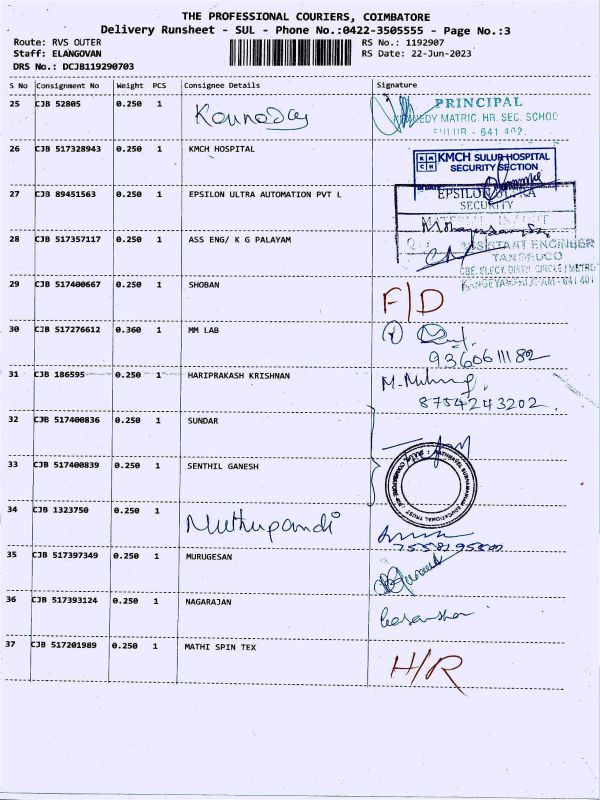 THE PROFESSIONAL COURIERS, COIMBATORE
Delivery Runsheet - SUL - Phone No.:0422-3505555 - Page No.:3
Route: RVS OUTER RS No.: 1192907
Staff: ELANGOVAN RS Date: 22-Jun-2023
DRS No.: DCJB119290703
S No Consignment No Weight PCS Consignee Details Signature
25 CJB 52805 0.250 1
PRINCIPAL
MATRIC. HR. SEC. SCHOO
SULUR - 641 402.
26 CJB 517328943 0.250 1 KMCH HOSPITAL
KMCH SULUR HOSPITAL
SECURITY SECTION
27 CJB 89451563 0.250 1 EPSILON ULTRA AUTOMATION PVT L
EPSILON ULTRA
SECURITY
28 CJB 517357117 0.250 1 ASS ENG/ K G PALAYAM
ASSISTANT ENGINEER
TANGEDCO
CBE. ELECY. DISTN. CIRCLE / METRO
29 CJB 517400667 0.250 1 SHOBAN F/D
30 CJB 517276612 0.360 1 MM LAB
9360611182
31 CJB 186595 0.250 1 HARIPRAKASH KRISHNAN
8754243202.
32 CJB 517400836 0.250 1 SUNDAR
33 CJB 517400839 0.250 1 SENTHIL GANESH
34 CJB 1323750 0.250 1 Muthupandi
35 CJB 517397349 0.250 1 MURUGESAN
36 CJB 517393124 0.250 1 NAGARAJAN
37 CJB 517201989 0.250 1 MATHI SPIN TEX H/R